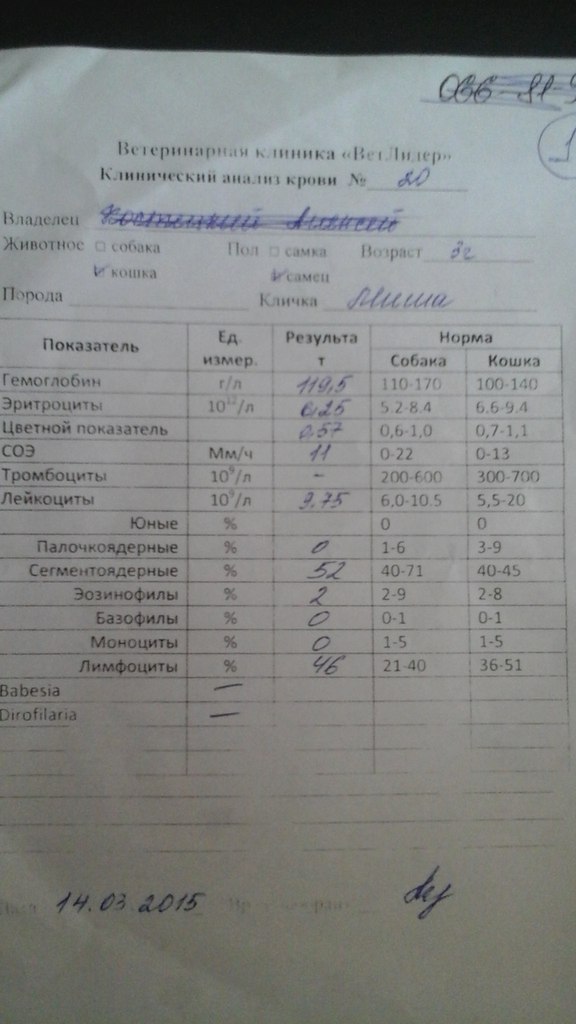 Ветеринарная клиника «ВетЛидер»
Клинический анализ крови № 20
Владелец
Животное собака Пол самка Возраст 3г
кошка самец
Порода Кличка
Показатель Ед. измер. Результат Норма
Собака Кошка
Гемоглобин г/л 119,5 110-170 100-140
Эритроциты 10¹²/л 6,25 5.2-8.4 6.6-9.4
Цветной показатель 0,57 0,6-1,0 0,7-1,1
СОЭ Мм/ч 11 0-22 0-13
Тромбоциты 10⁹/л - 200-600 300-700
Лейкоциты 10⁹/л 9.75 6,0-10.5 5,5-20
Юные % 0 0
Палочкоядерные % 0 1-6 3-9
Сегментоядерные % 52 40-71 40-45
Эозинофилы % 2 2-9 2-8
Базофилы % 0 0-1 0-1
Моноциты % 0 1-5 1-5
Лимфоциты % 46 21-40 36-51
Babesia —
Dirofilaria —
Дата 14.03.2015